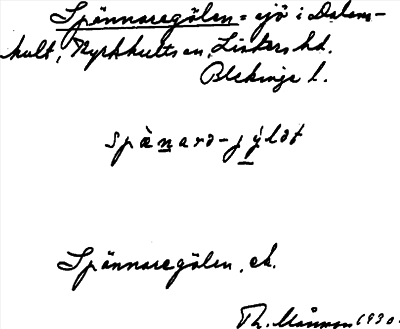 Spännaregölen = sjö i Dalans-
hult, Kyrkhults sn, Listers hd.
Blekinge l.
spànarə-jy̠ldt
Spännaregölen. ek.
Th. Månsson 1930.